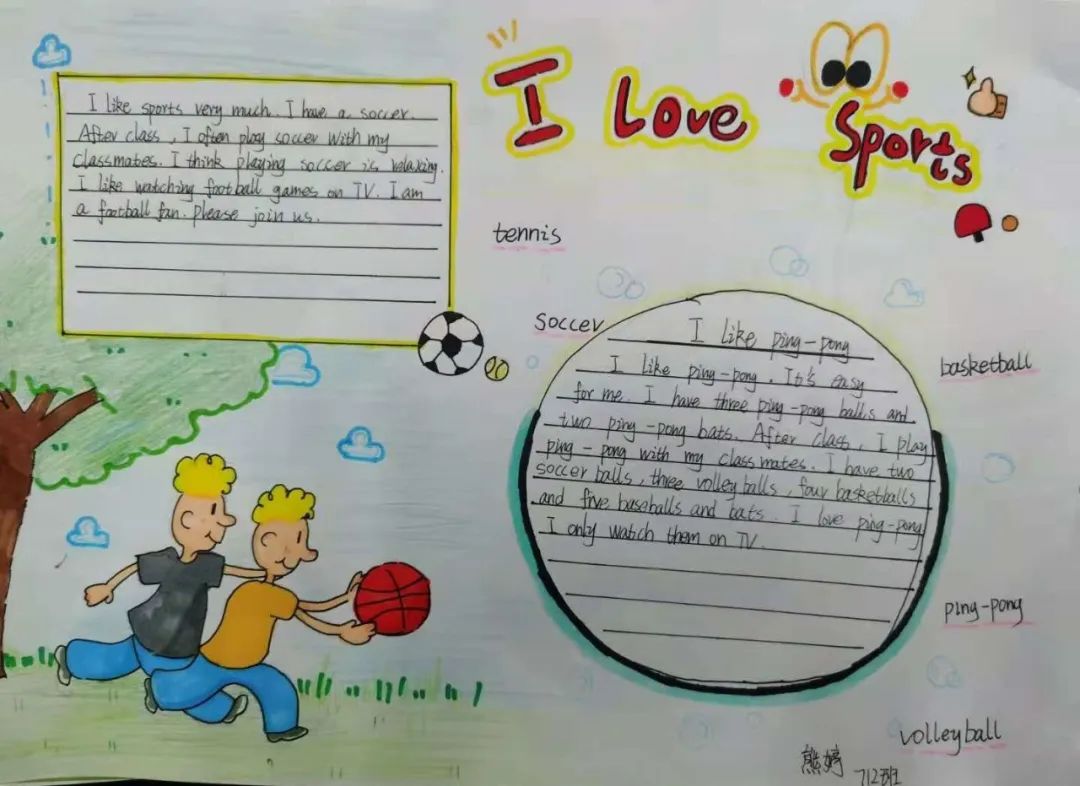 I Love Sports
I like sports very much. I have a soccer.
After class, I often play soccer with my
classmates. I think playing soccer is relaxing.
I like watching football games on TV. I am
a football fan. Please join us.
tennis
soccer
basketball
ping-pong
volleyball
I like ping-pong
I like ping-pong. It's easy
for me. I have three ping-pong balls and
two ping-pong bats. After class, I play
ping-pong with my classmates. I have two
soccer balls, three volleyballs, four basketballs
and five baseballs and bats. I love ping-pong
I only watch them on TV.
熊婷
712班